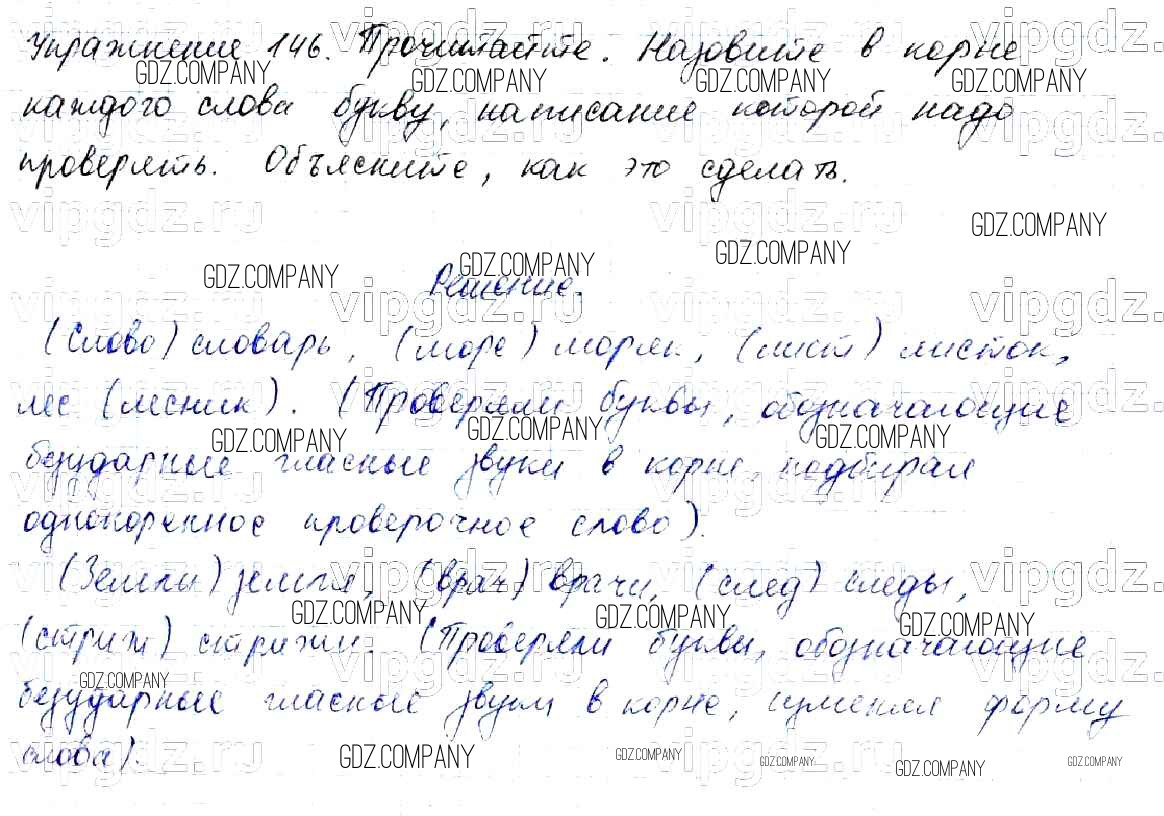 Упражнение 146. Прочитайте. Назовите в корне
каждого слова букву, написание которой надо
проверять. Объясните, как это сделать.
Решение.
(Слово) словарь, (море) моряк, (лист) листок,
лес (лесник). (Проверяли буквы, обозначающие
безударные гласные звуки в корне, подбирая
однокоренное проверочное слово).
(Земли) земля, (врач) врачи, (след) следы,
(стриж) стрижи. (Проверяли буквы, обозначающие
безударные гласные звуки в корне, изменяя форму
слова).
GDZ.COMPANY
vipgdz.ru